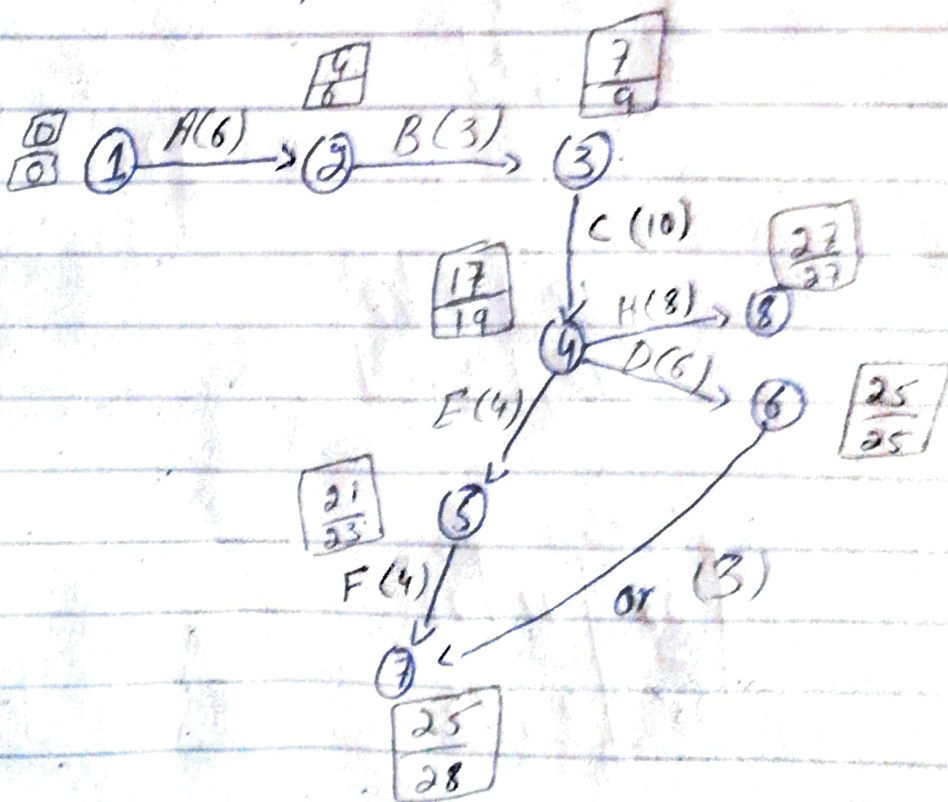 4
6
7
9
0
0
1
A(6)
2
B (3)
3
C (10)
17
19
H(8)
27
27
8
4
D(6)
6
25
25
E(4)
21
23
5
F(4)
or (3)
7
25
28